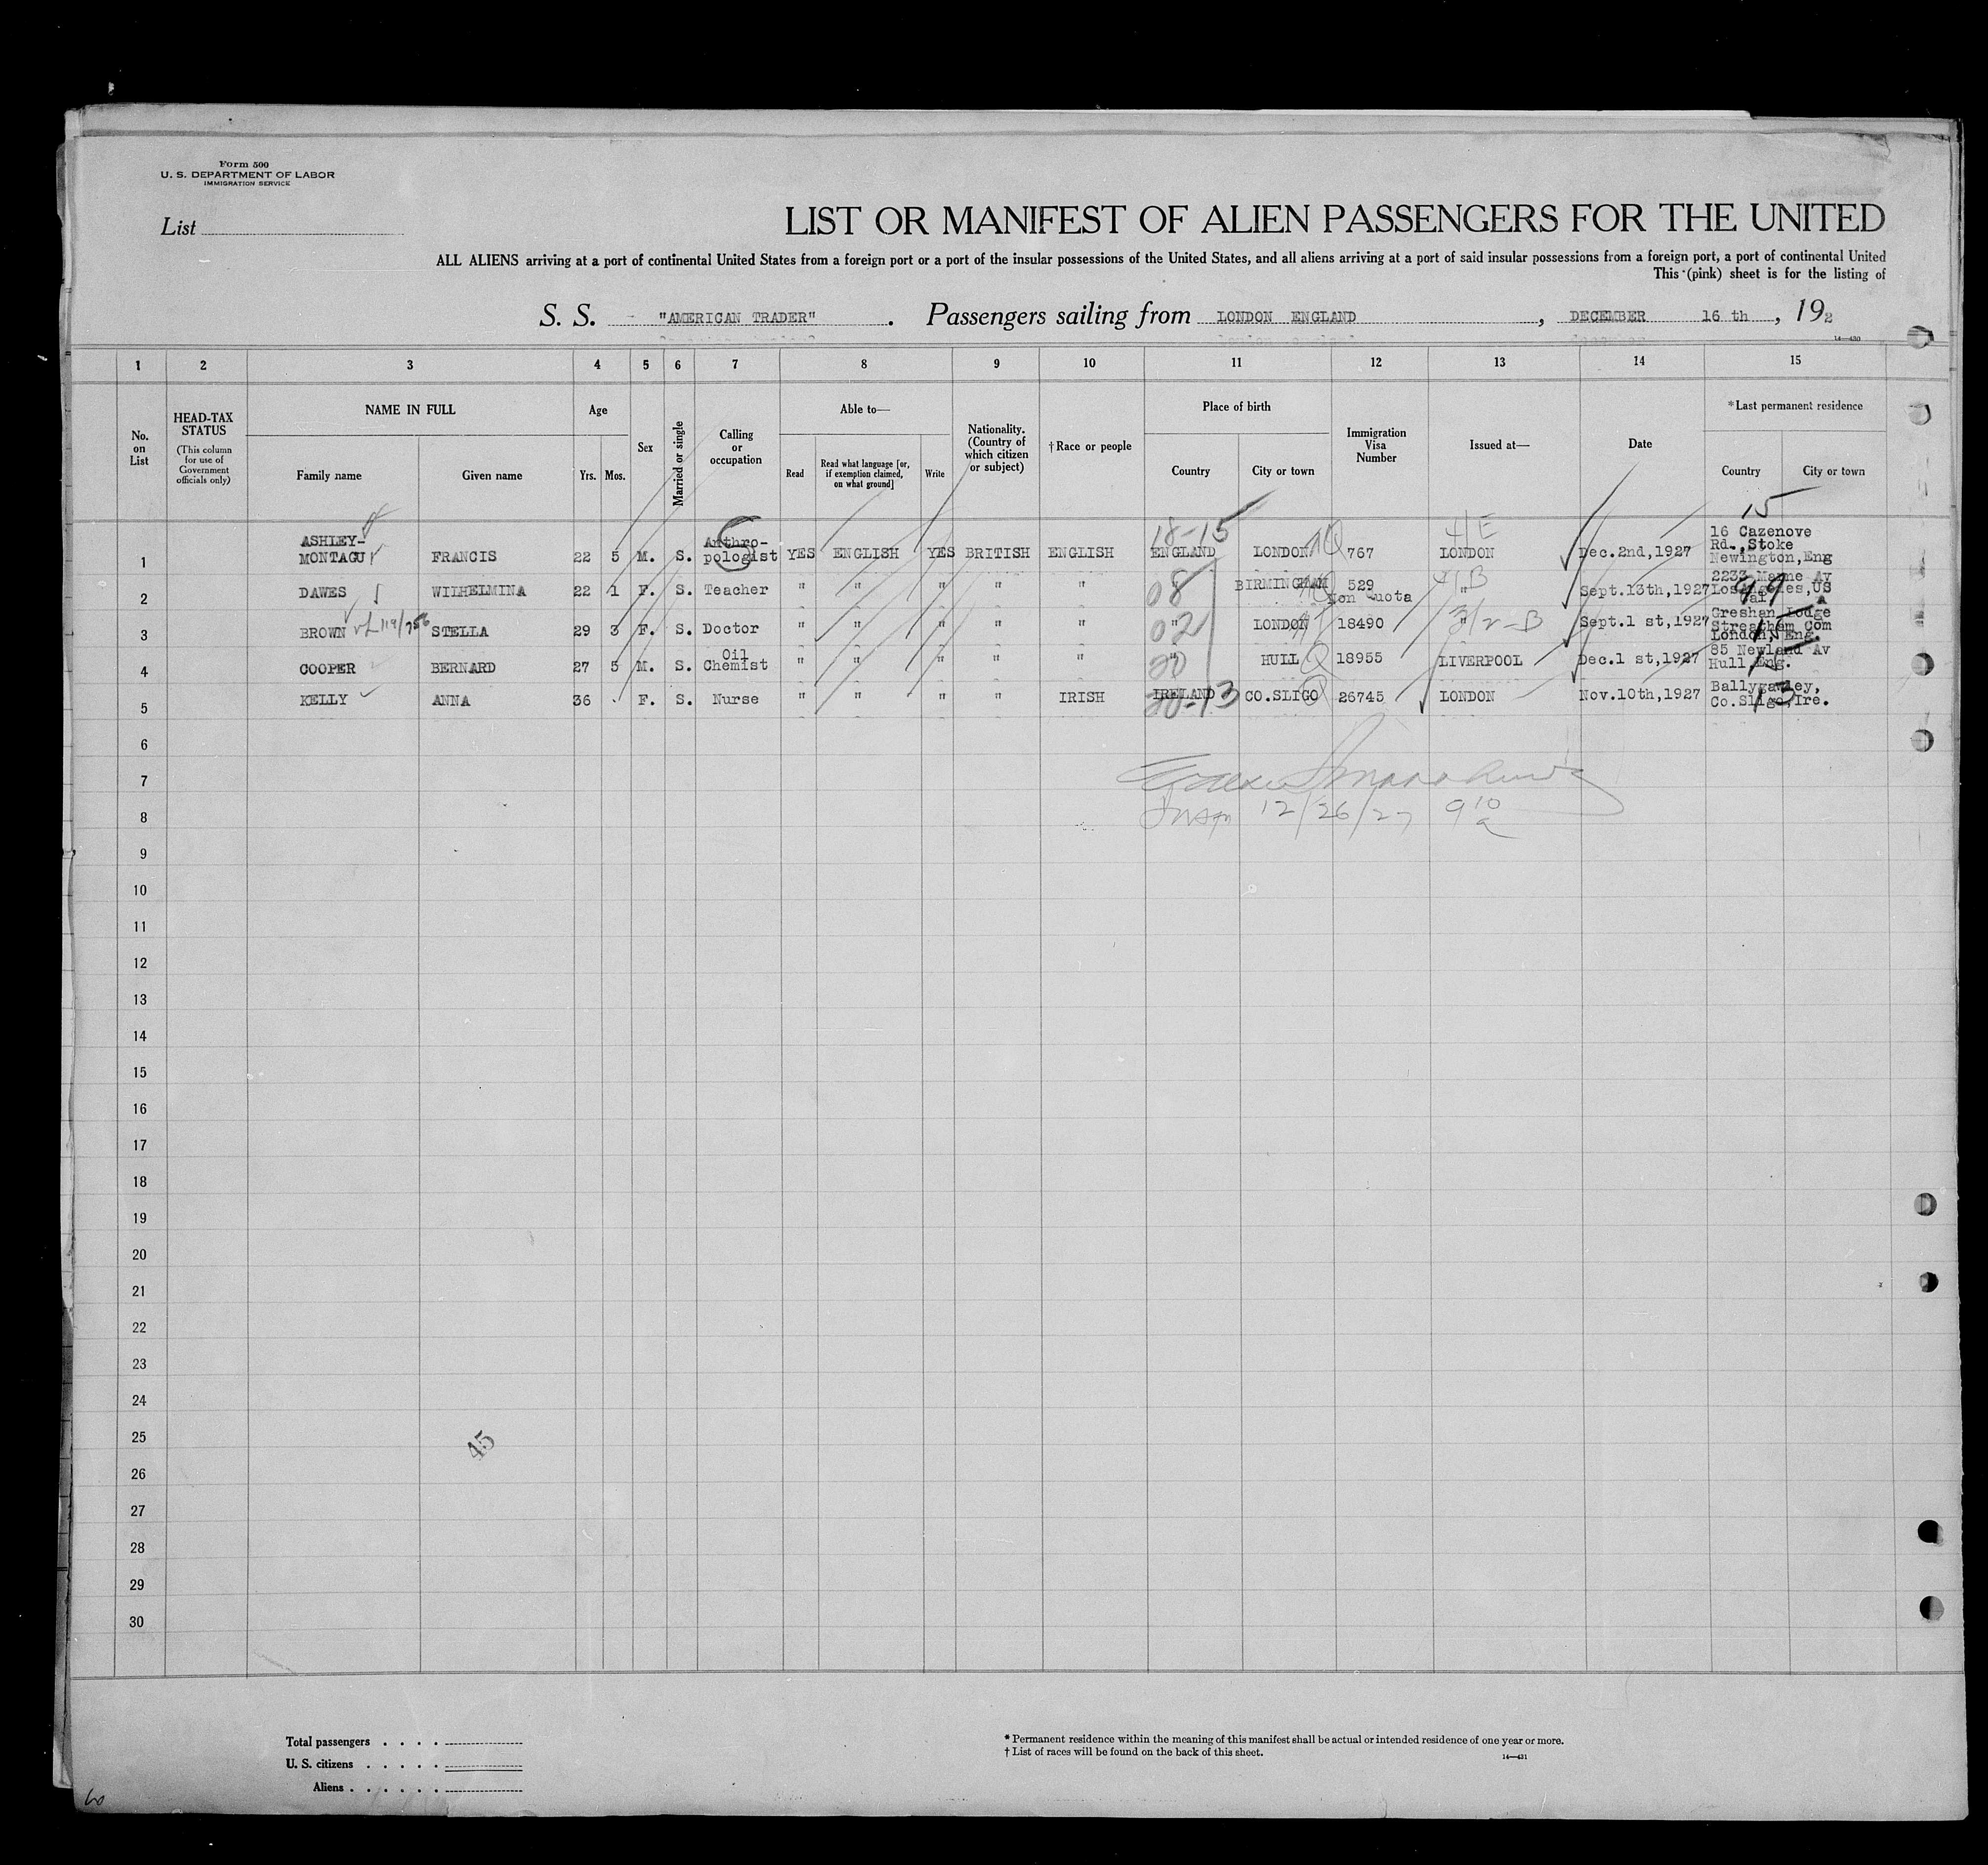 Form 500
U. S. DEPARTMENT OF LABOR
IMMIGRATION SERVICE
List
LIST OR MANIFEST OF ALIEN PASSENGERS FOR THE UNITED
ALL ALIENS arriving at a port of continental United States from a foreign port or a port of the insular possessions of the United States, and all aliens arriving at a port of said insular possessions from a foreign port, a port of continental United
This (pink) sheet is for the listing of
S. S. "AMERICAN TRADER". Passengers sailing from LONDON ENGLAND, DECEMBER 16 th, 192
14—430
1 2 3 4 5 6 7 8 9 10 11 12 13 14 15
No. on List
HEAD-TAX STATUS
(This column for use of Government officials only)
NAME IN FULL
Family name Given name
Age
Yrs. Mos.
Sex
Married or single
Calling or occupation
Able to—
Read
Read what language [or, if exemption claimed, on what ground]
Write
Nationality. (Country of which citizen or subject)
†Race or people
Place of birth
Country City or town
Immigration Visa Number
Issued at—
Date
*Last permanent residence
Country City or town
15
18-15 4/E
1 ASHLEY-MONTAGU FRANCIS 22 5 M. S. Anthro-pologist YES ENGLISH YES BRITISH ENGLISH ENGLAND LONDON 767 LONDON Dec.2nd,1927 16 Cazenove Rd.,Stoke Newington,Eng
2 DAWES WILHELMINA 22 1 F. S. Teacher " " " " " " BIRMINGHAM 529 Non Quota " Sept.13th,1927 2233 Marne Av Los Angeles, Cal US A
08 4/B 99
3 BROWN STELLA 29 3 F. S. Doctor " " " " " " LONDON 18490 " Sept.1 st,1927 Greshan Lodge Streatham Com London, Eng.
02 3/2-B 15
4 COOPER BERNARD 27 5 M. S. Oil Chemist " " " " " " HULL 18955 LIVERPOOL Dec.1 st,1927 85 Newland Av Hull,Eng.
20 15
5 KELLY ANNA 36 F. S. Nurse " " " " IRISH IRELAND CO.SLIGO 26745 LONDON Nov.10th,1927 Ballygawley, Co.Sligo,Ire.
20-13 13
6
7
Insp 12/26/27 9 10 a
8
9
10
11
12
13
14
15
16
17
18
19
20
21
22
23
24
25
45
26
27
28
29
30
Total passengers . . . .
U. S. citizens . . . . .
Aliens . . . . . .
* Permanent residence within the meaning of this manifest shall be actual or intended residence of one year or more.
† List of races will be found on the back of this sheet.
14—431